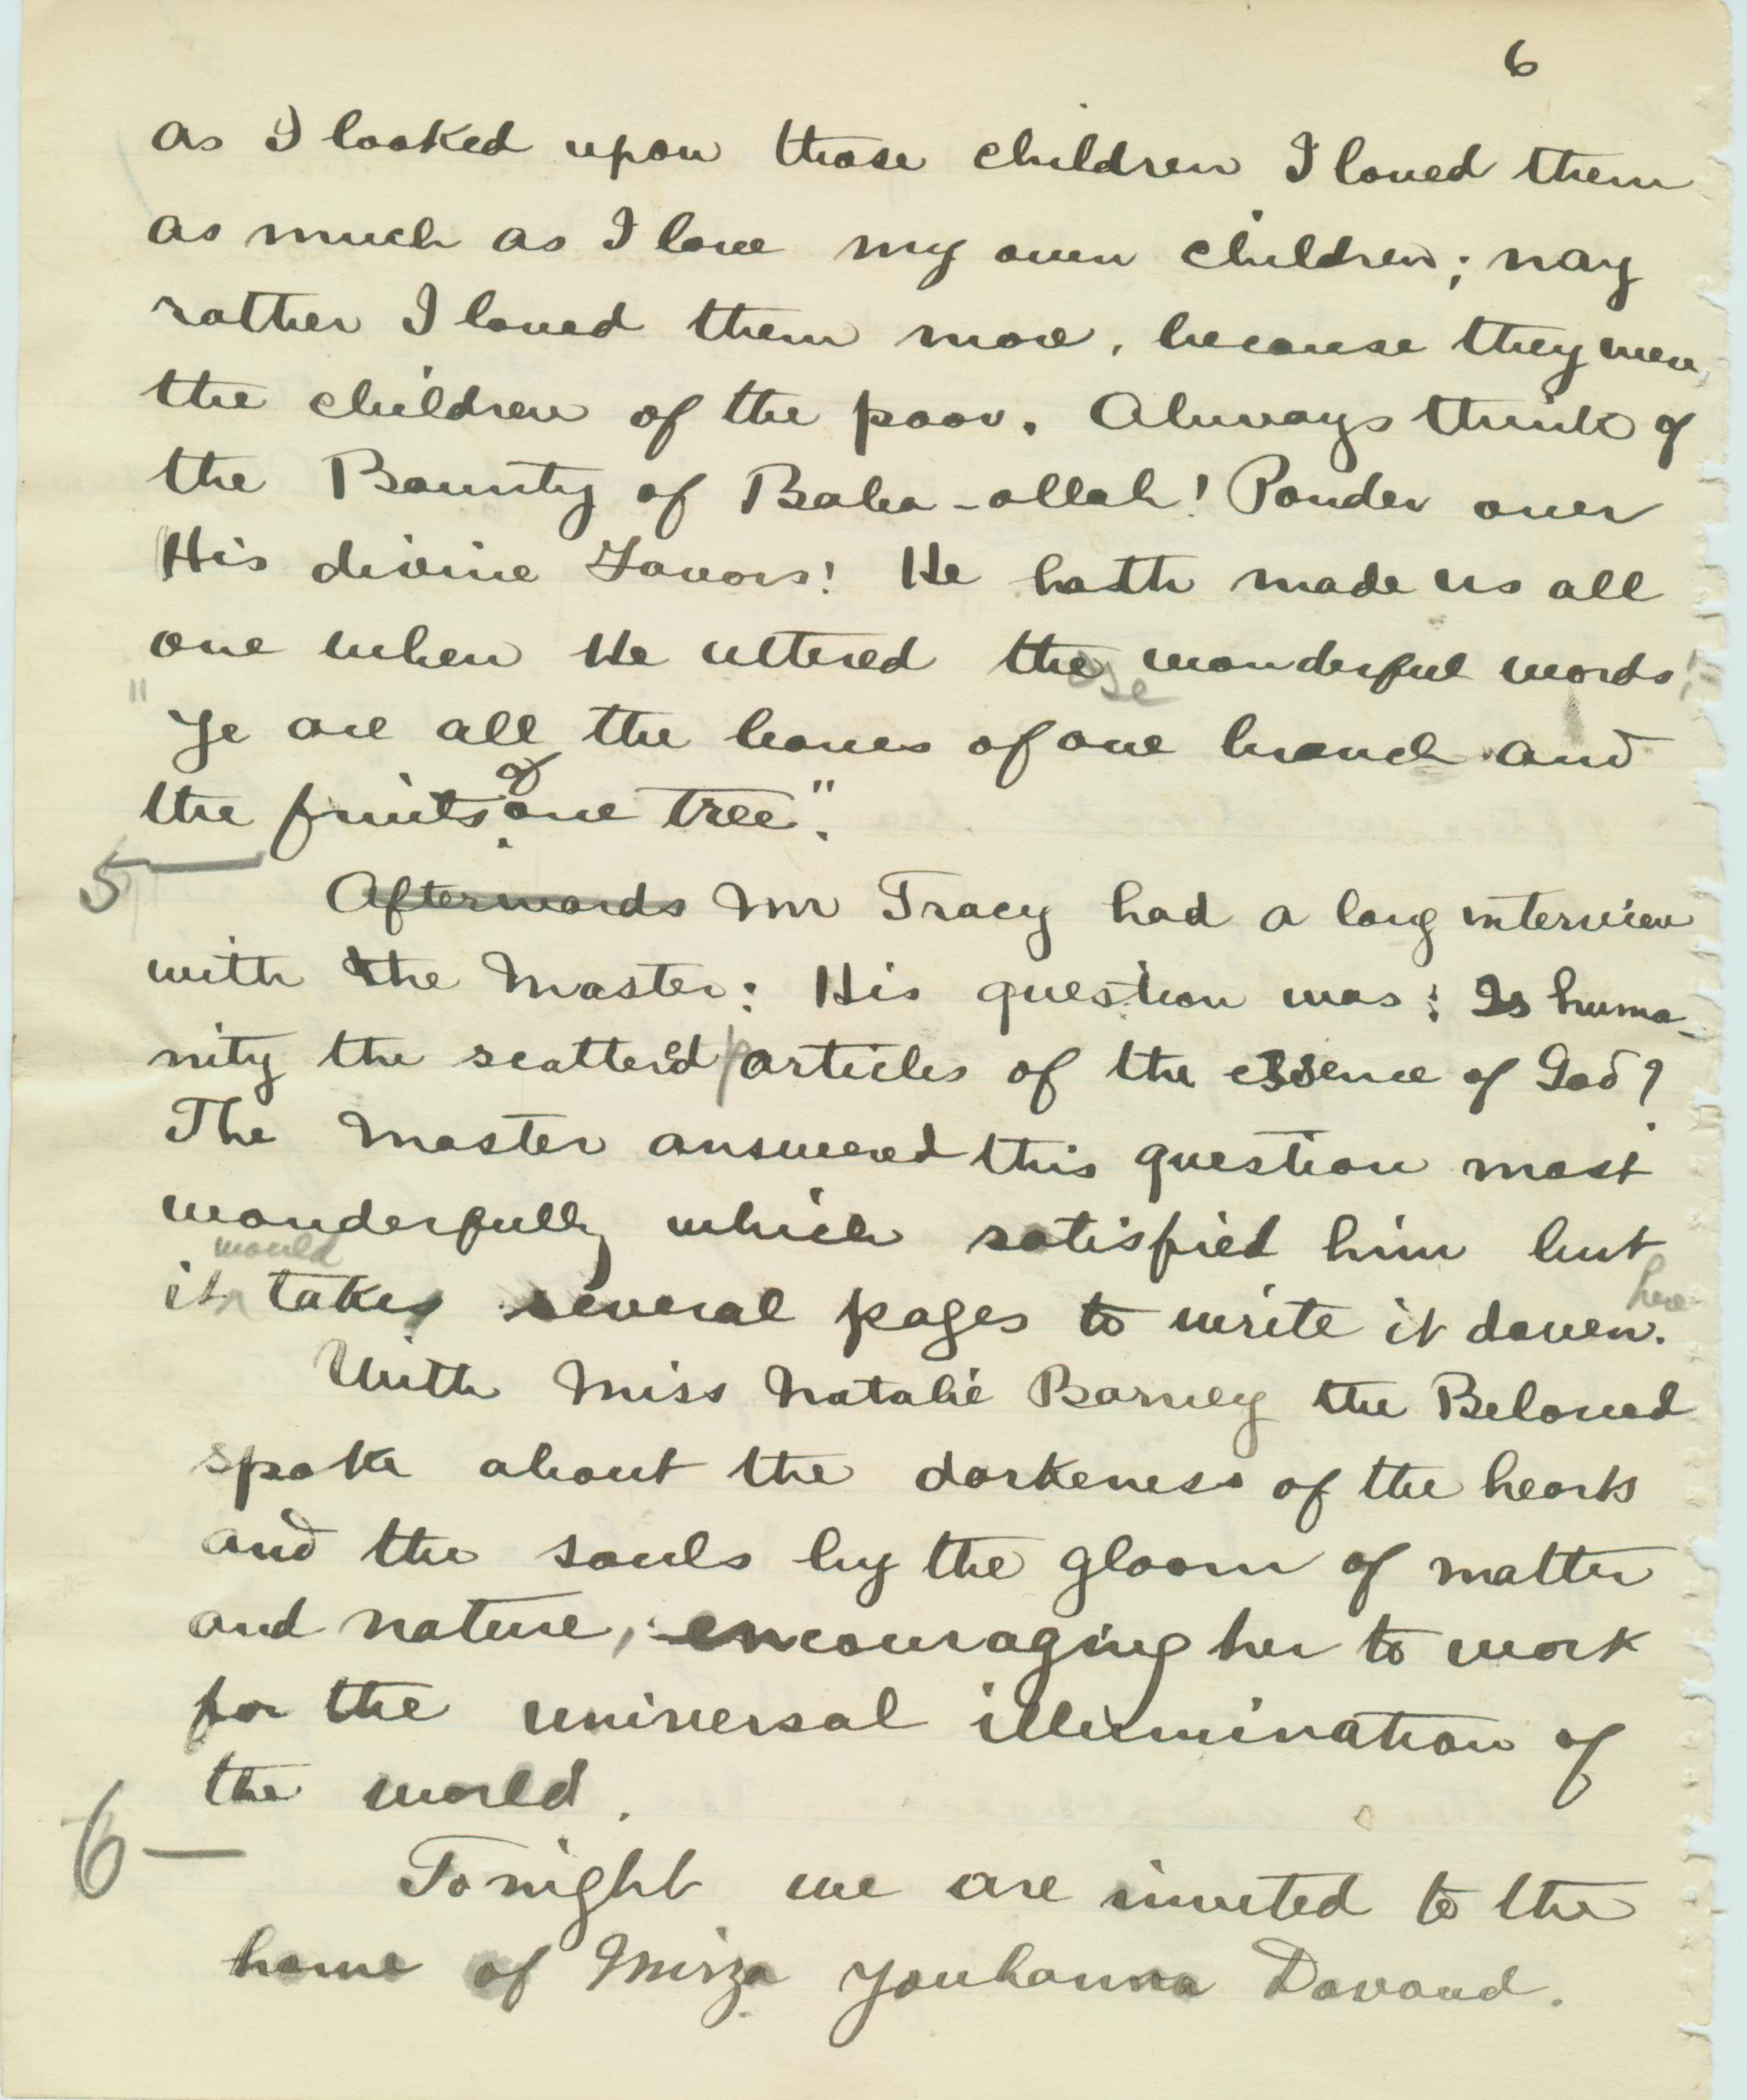 6
as I looked upon those children I loved them
as much as I love my own children; nay
rather I loved them more, because they were
the children of the poor. Always think of
the Bounty of Baha-ollah! Ponder over
His divine Favors! He hath made us all
one when He uttered those wonderful words:
"Ye are all the leaves of one branch and
the fruits of one tree".
5—
Afterwards Mr Tracy had a long interview
with the Master: His question was: Is huma-
nity the scatterd particles of the essence of God?
The Master answered this question most
wonderfully which satisfied him but
would
it takes several pages to write it down. here
With Miss Natalie Barney the Beloved
spoke about the darkeness of the hearts
and the souls by the gloom of matter
and nature, encouraging her to work
for the universal illumination of
the world.
6—
Tonight we are invited to the
home of Mirza Youhanna Davoud.